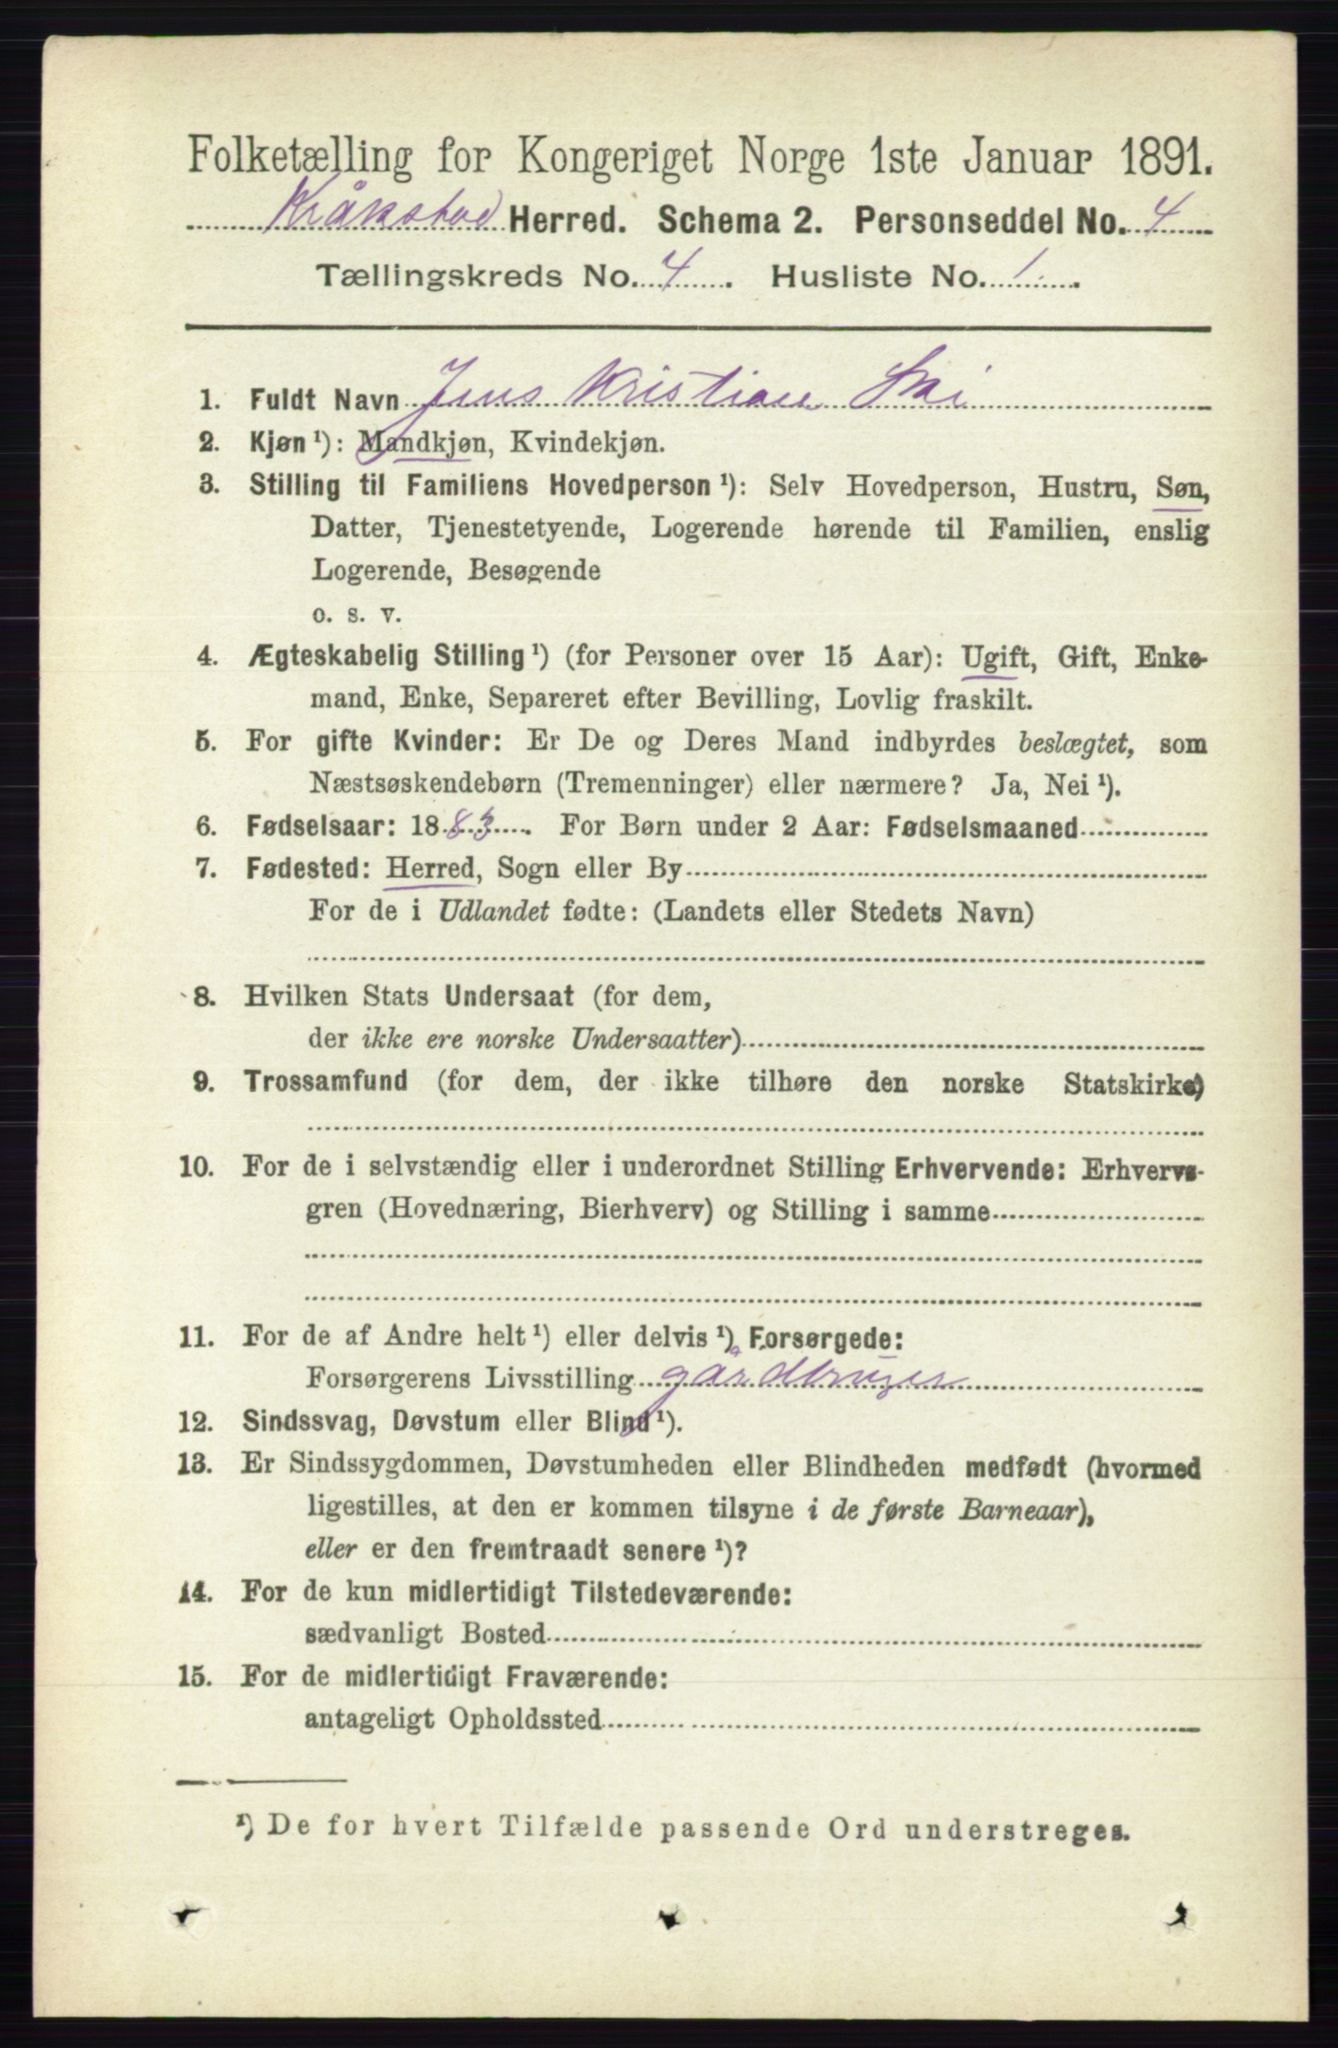 Folketælling for Kongeriget Norge 1ste Januar 1891.
Kråkstad Herred. Schema 2. Personseddel No. 4
Tællingskreds No. 4. Husliste No. 1.
1. Fuldt Navn Jens Kristian Ski
2. Kjøn ¹): Mandkjøn, Kvindekjøn.
3. Stilling til Familiens Hovedperson ¹): Selv Hovedperson, Hustru, Søn,
Datter, Tjenestetyende, Logerende hørende til Familien, enslig
Logerende, Besøgende
o. s. v.
4. Ægteskabelig Stilling ¹) (for Personer over 15 Aar): Ugift, Gift, Enke-
mand, Enke, Separeret efter Bevilling, Lovlig fraskilt.
5. For gifte Kvinder: Er De og Deres Mand indbyrdes beslægtet, som
Næstsøskendebørn (Tremenninger) eller nærmere? Ja, Nei ¹).
6. Fødselsaar: 1883. For Børn under 2 Aar: Fødselsmaaned
7. Fødested: Herred, Sogn eller By
For de i Udlandet fødte: (Landets eller Stedets Navn)
8. Hvilken Stats Undersaat (for dem,
der ikke ere norske Undersaatter)
9. Trossamfund (for dem, der ikke tilhøre den norske Statskirke)
10. For de i selvstændig eller i underordnet Stilling Erhvervende: Erhvervs-
gren (Hovednæring, Bierhverv) og Stilling i samme
11. For de af Andre helt ¹) eller delvis ¹) Forsørgede:
Forsørgerens Livsstilling gårdbruger
12. Sindssvag, Døvstum eller Blind ¹).
13. Er Sindssygdommen, Døvstumheden eller Blindheden medfødt (hvormed
ligestilles, at den er kommen tilsyne i de første Barneaar),
eller er den fremtraadt senere ¹)?
14. For de kun midlertidigt Tilstedeværende:
sædvanligt Bosted
15. For de midlertidigt Fraværende:
antageligt Opholdssted
¹) De for hvert Tilfælde passende Ord understreges.